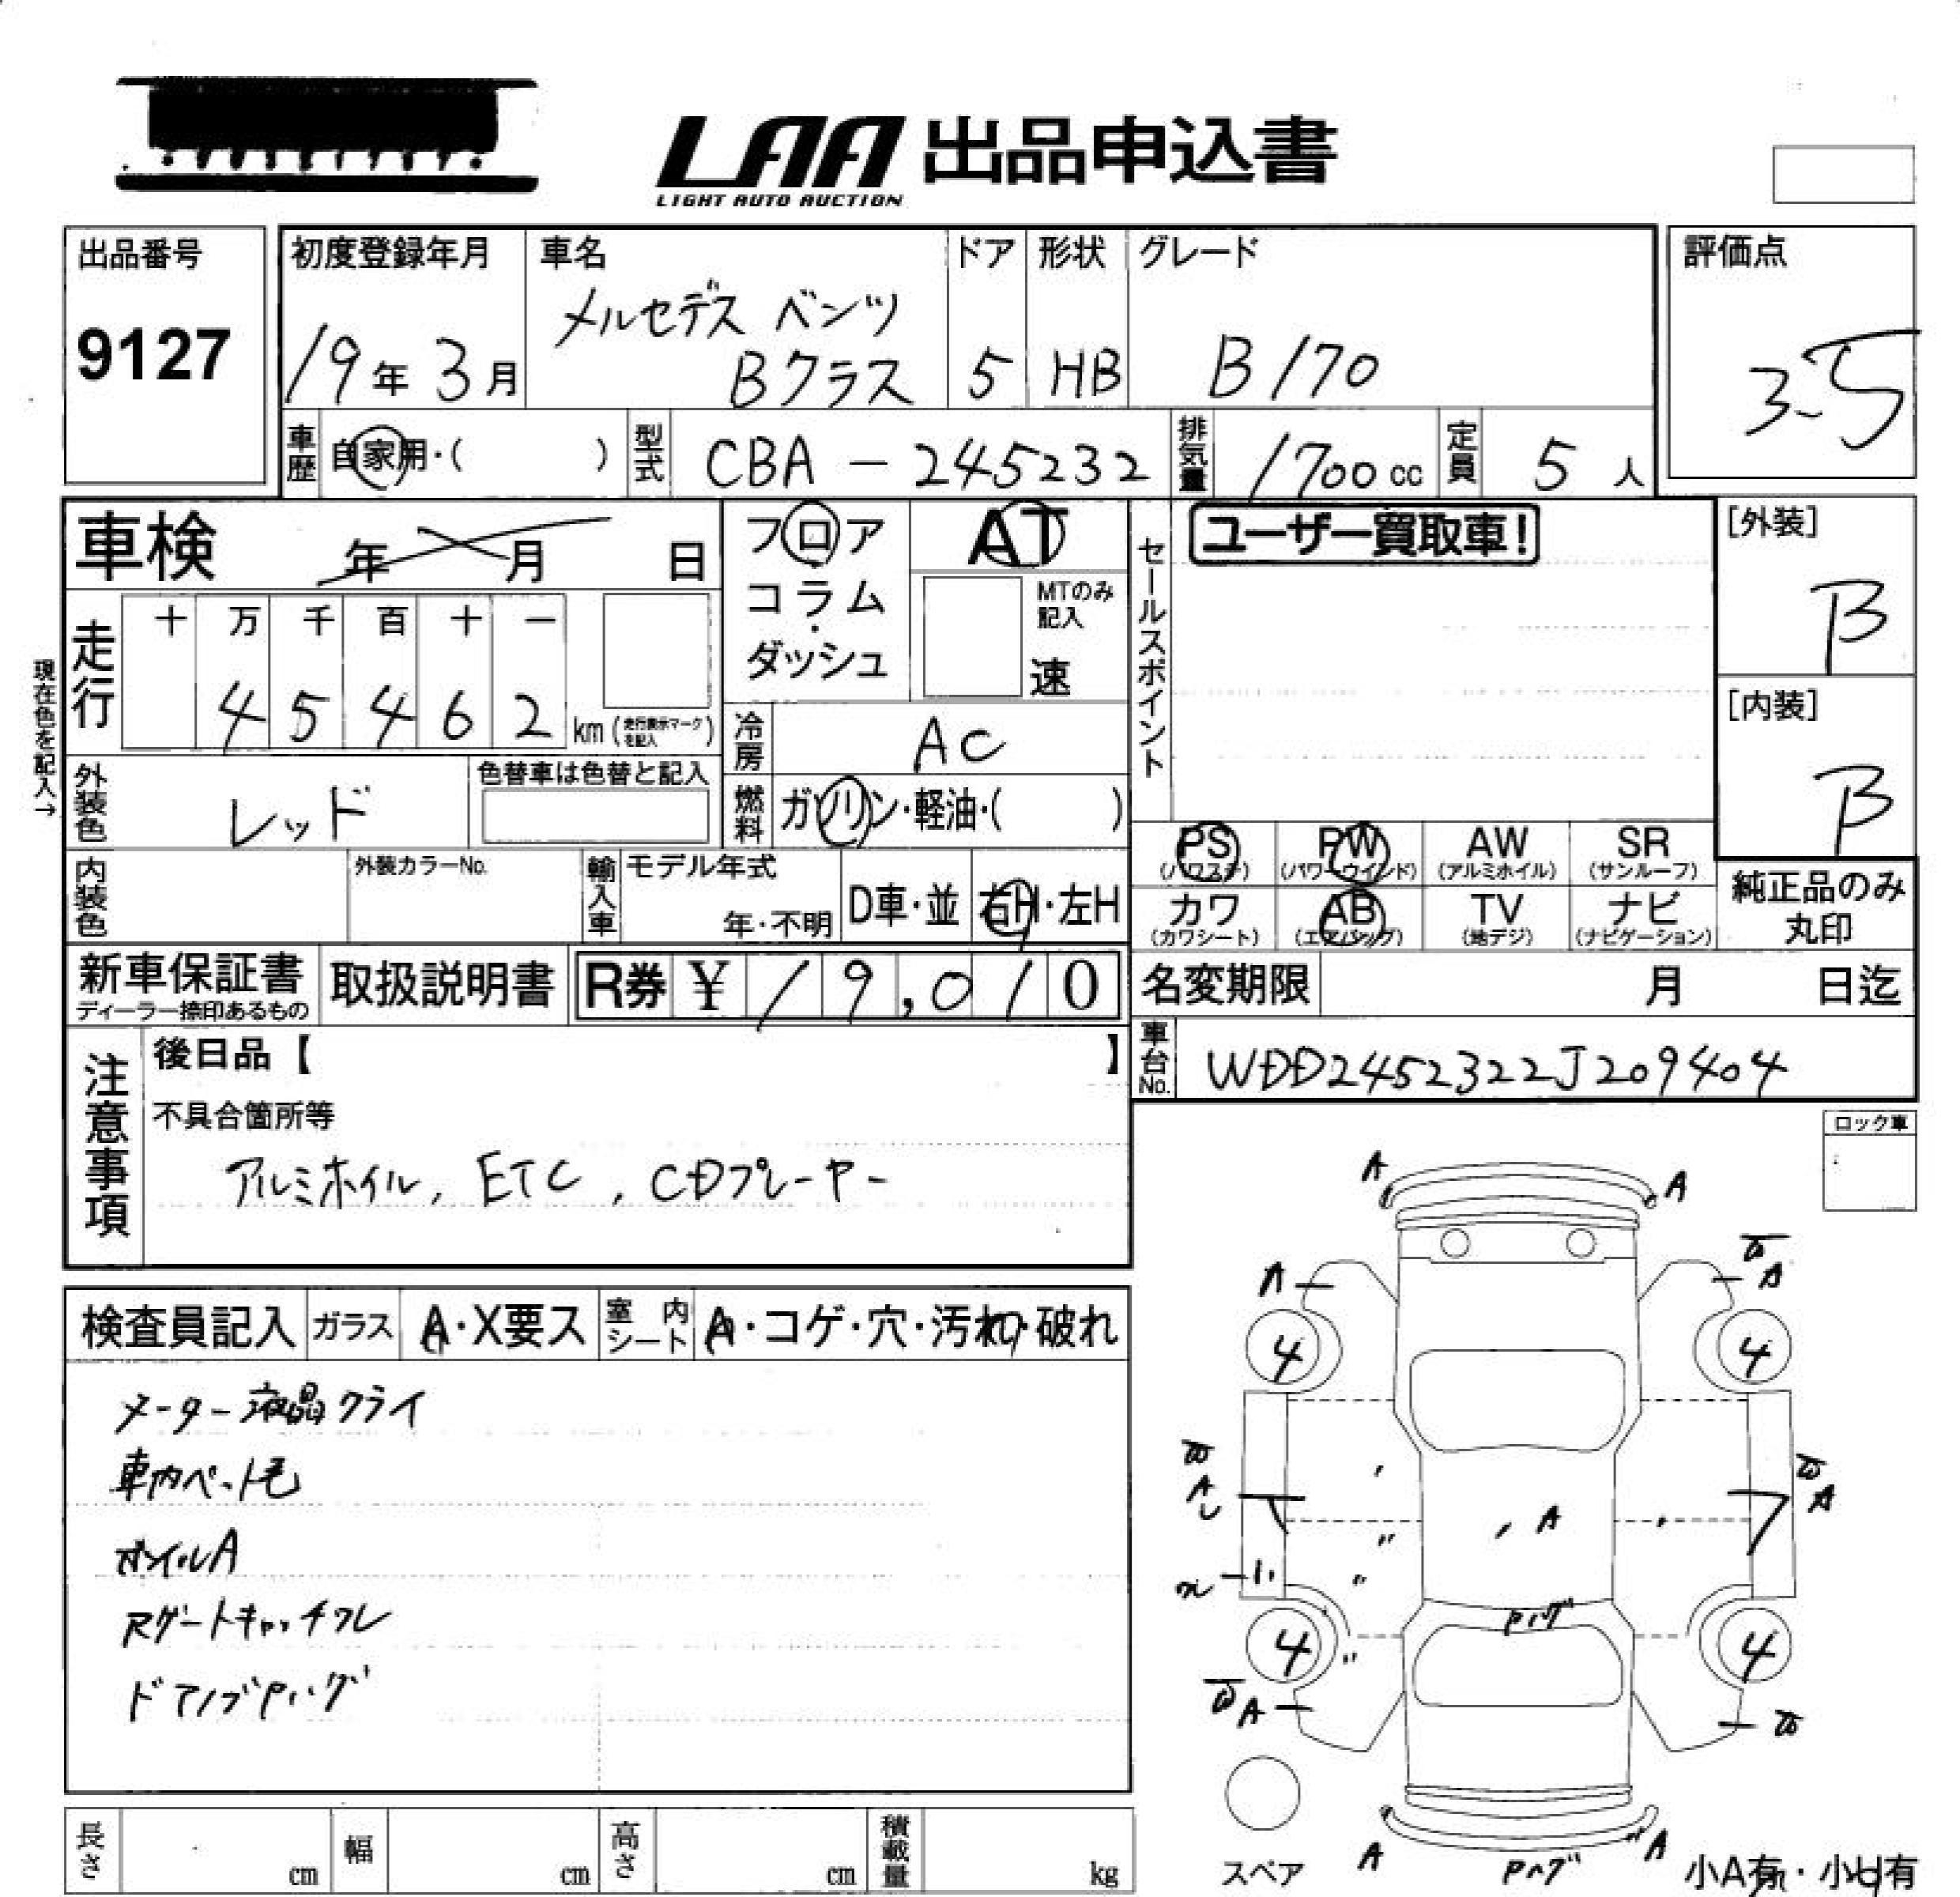 LAA 出品申込書
LIGHT AUTO AUCTION
出品番号
9127
初度登録年月
19年 3月
車名
メルセデス ベンツ
Bクラス
ドア
5
形状
HB
グレード
B170
評価点
3.5
車歴
自家用・( )
型式
CBA-245232
排気量
1700cc
定員
5人
車検 年 月 日
フロア
コラム
ダッシュ
AT
MTのみ
記入
速
セールスポイント
ユーザー買取車!
[外装]
B
[内装]
B
現在色を記入→
走行
十 万 千 百 十 一
4 5 4 6 2 km (走行表示マークを記入)
冷房
AC
外装色
レッド
色替車は色替と記入
燃料
ガソリン・軽油・( )
PS
(パワステ)
PW
(パワーウインド)
AW
(アルミホイル)
SR
(サンルーフ)
カワ
(カワシート)
AB
(エアバッグ)
TV
(地デジ)
ナビ
(ナビゲーション)
純正品のみ
丸印
内装色
外装カラーNo.
輸入車
モデル年式
年・不明
D車・並
右H・左H
新車保証書
ディーラー捺印あるもの
取扱説明書
R券 ¥ 19,010
名変期限 月 日迄
車台No.
WDD2452322J209404
注意事項
後日品【 】
不具合箇所等
アルミホイル, ETC, CDプレーヤー
ロック車
検査員記入
ガラス
A・X要ス
室内シート
A・コゲ・穴・汚れ・破れ
メーター液晶クライ
車内ペット毛
ホイルA
Rゲートキャッチフレ
ドアノブPハゲ
A
A
A
A
4
4
A
A
A
Pハゲ
4
4
A
スペア
A
Pハゲ
A
小A有・小U有
長さ cm
幅 cm
高さ cm
積載量 kg